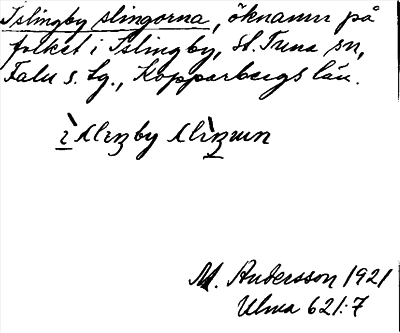 Islingby slingorna, öknamn på
folket i Islingby, St. Tuna sn,
Falu s. lg., Kopparbergs län.
M. Andersson 1921
Ulma 621:7